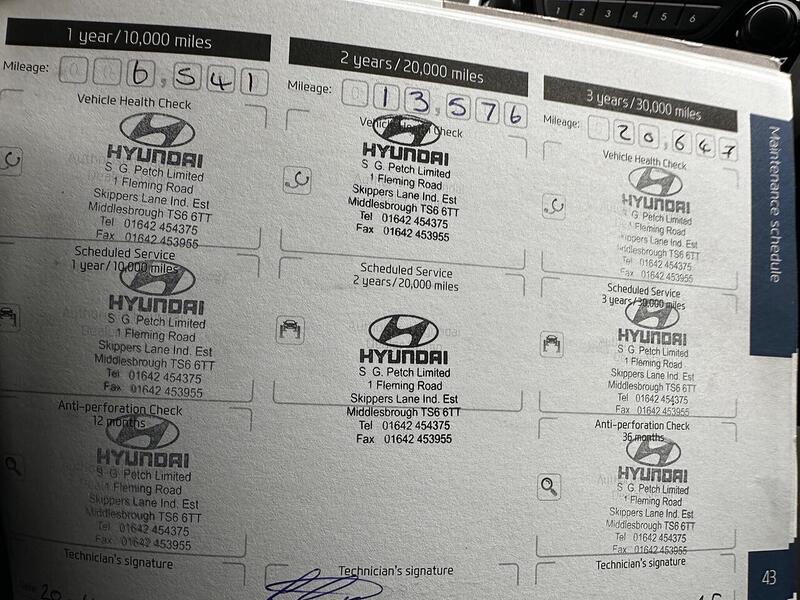 1 2 3 4 5 6
1 year/10,000 miles
Mileage: 0 0 6,541
Vehicle Health Check
HYUNDAI
S G. Petch Limited
1 Fleming Road
Skippers Lane Ind. Est
Middlesbrough TS6 6TT
Tel 01642 454375
Fax 01642 453955
Scheduled Service
1 year/10,000 miles
HYUNDAI
S G. Petch Limited
1 Fleming Road
Skippers Lane Ind. Est
Middlesbrough TS6 6TT
Tel 01642 454375
Fax 01642 453955
Anti-perforation Check
12 months
HYUNDAI
S G. Petch Limited
1 Fleming Road
Skippers Lane Ind. Est
Middlesbrough TS6 6TT
Tel 01642 454375
Fax 01642 453955
Technician's signature
2 years/20,000 miles
Mileage: 0 13,576
Vehicle Health Check
HYUNDAI
S G. Petch Limited
1 Fleming Road
Skippers Lane Ind. Est
Middlesbrough TS6 6TT
Tel 01642 454375
Fax 01642 453955
Scheduled Service
2 years/20,000 miles
HYUNDAI
S G. Petch Limited
1 Fleming Road
Skippers Lane Ind. Est
Middlesbrough TS6 6TT
Tel 01642 454375
Fax 01642 453955
Technician's signature
3 years/30,000 miles
Mileage: 20,647
Vehicle Health Check
HYUNDAI
S G. Petch Limited
1 Fleming Road
Skippers Lane Ind. Est
Middlesbrough TS6 6TT
Tel 01642 454375
Fax 01642 453955
Scheduled Service
3 years/30,000 miles
HYUNDAI
S G. Petch Limited
1 Fleming Road
Skippers Lane Ind. Est
Middlesbrough TS6 6TT
Tel 01642 454375
Fax 01642 453955
Anti-perforation Check
36 months
HYUNDAI
S G. Petch Limited
1 Fleming Road
Skippers Lane Ind. Est
Middlesbrough TS6 6TT
Tel 01642 454375
Fax 01642 453955
Technician's signature
Maintenance schedule
43